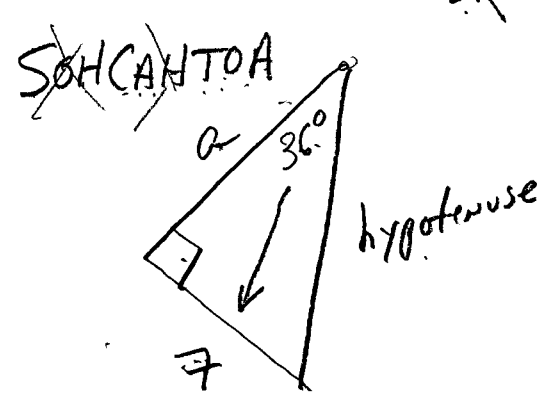 SOHCAHTOA
a
36°
hypotenuse
7